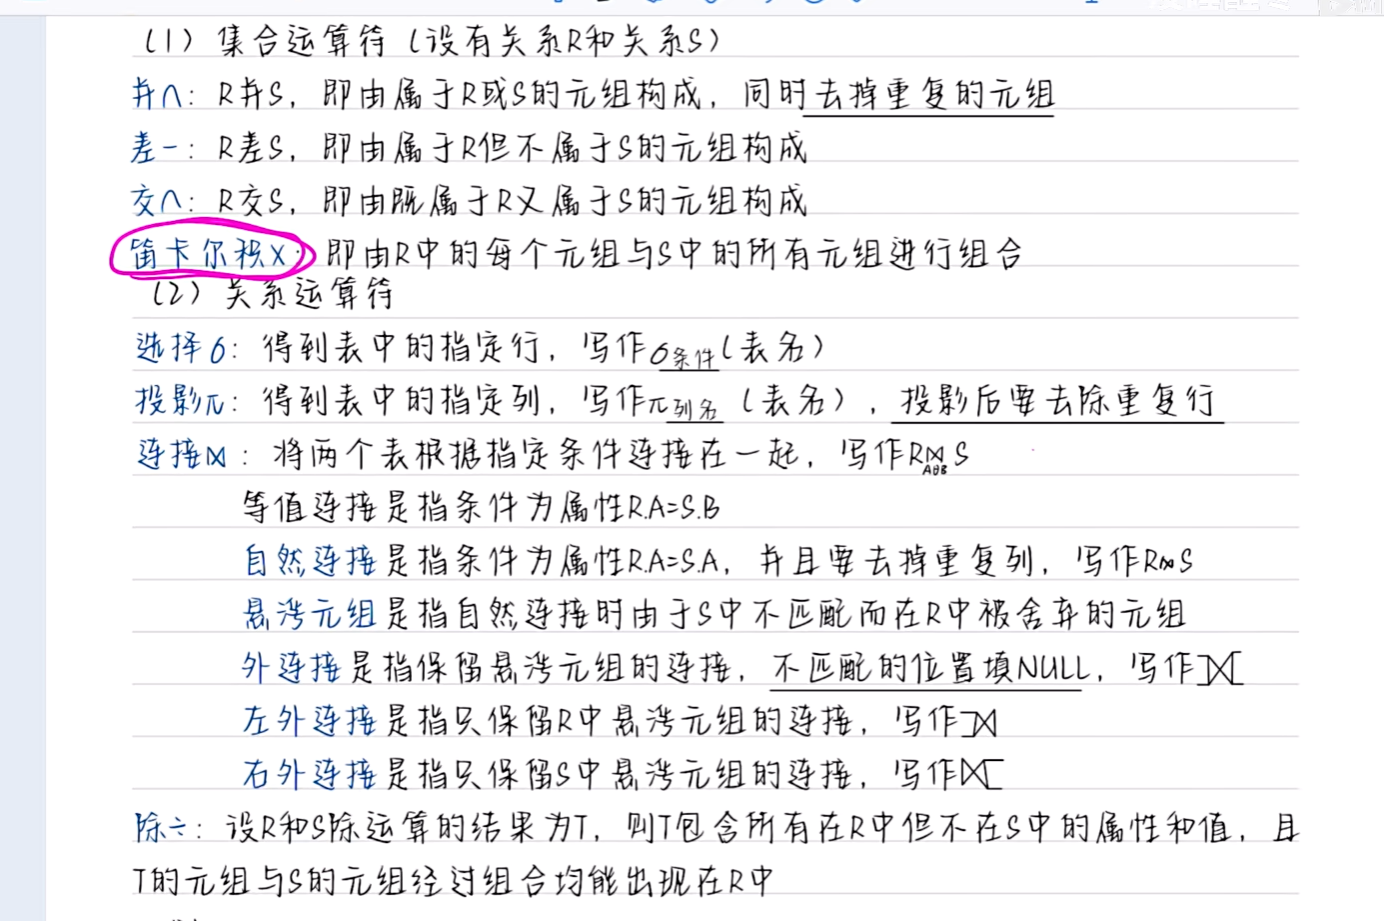 (1) 集合运算符(设有关系R和关系S)
并∩: R并S, 即由属于R或S的元组构成, 同时去掉重复的元组
差-: R差S, 即由属于R但不属于S的元组构成
交∩: R交S, 即由既属于R又属于S的元组构成
笛卡尔积X: 即由R中的每个元组与S中的所有元组进行组合
(2) 关系运算符
选择σ: 得到表中的指定行, 写作σ条件(表名)
投影π: 得到表中的指定列, 写作π列名(表名), 投影后要去除重复行
连接⋈: 将两个表根据指定条件连接在一起, 写作R⋈S AθB
等值连接是指条件为属性R.A=S.B
自然连接是指条件为属性R.A=S.A, 并且要去掉重复列, 写作R⋈S
悬浮元组是指自然连接时由于S中不匹配而在R中被舍弃的元组
外连接是指保留悬浮元组的连接, 不匹配的位置填NULL, 写作⟗
左外连接是指只保留R中悬浮元组的连接, 写作⟕
右外连接是指只保留S中悬浮元组的连接, 写作⟖
除÷: 设R和S除运算的结果为T, 则T包含所有在R中但不在S中的属性和值, 且
T的元组与S的元组经过组合均能出现在R中